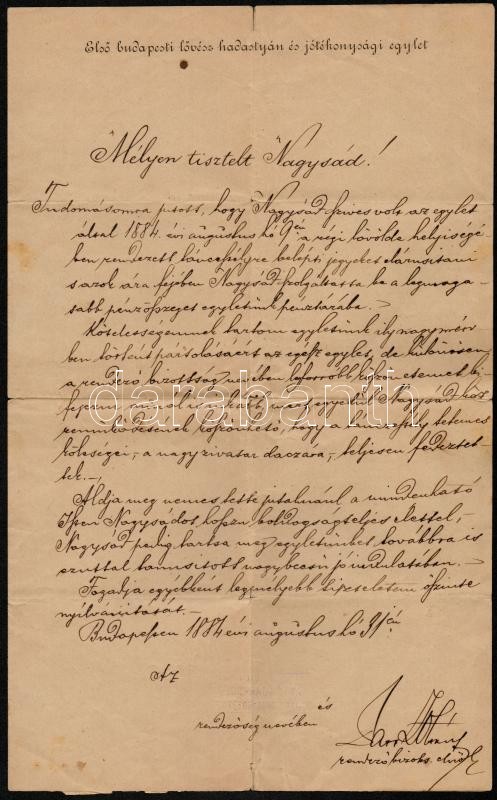 Első budapesti lövész hadastyán és jótékonysági egylet
Mélyen tisztelt Nagysád!
Tudomásomra jutott, hogy Nagysád szives volt az egylet
által 1884. évi augusztus hó 9én a régi lövölde helyiségé-
ben rendezett táncestélyre belépti jegyeket elárusitani
s azok ára fejében Nagysád szolgáltatta be a legmaga-
sabb pénzösszeget egyletünk pénztárába. –
Kötelességemnek tartom egyletünk ily nagymérv-
ben történt pártolásáért az egész egylet, de különösen
a rendező bizottság nevében legforróbb köszönetemet ki-
fejezni, mivel is inkább, mert egyedül Nagysád köz-
remüködésének köszönhető, hogy a táncestély tetemes
költségei, – a nagy zivatar daczára, – teljesen fedeztet-
tek. –
Áldja meg nemes tette jutalmául a mindenható
Isten Nagysádot hosszu boldogságteljes élettel, –
Nagysád pedig tartsa meg egyletünket továbbra is
ezuttal tanusitott nagybecsü jó indulatában. –
Fogadja egyébként legmélyebb tiszteletem őszinte
nyilvánitását. –
Budapesten 1884 évi augusztus hó 31én
Az
és
rendezőség nevében
rendező bizotts. elnök
darabanth